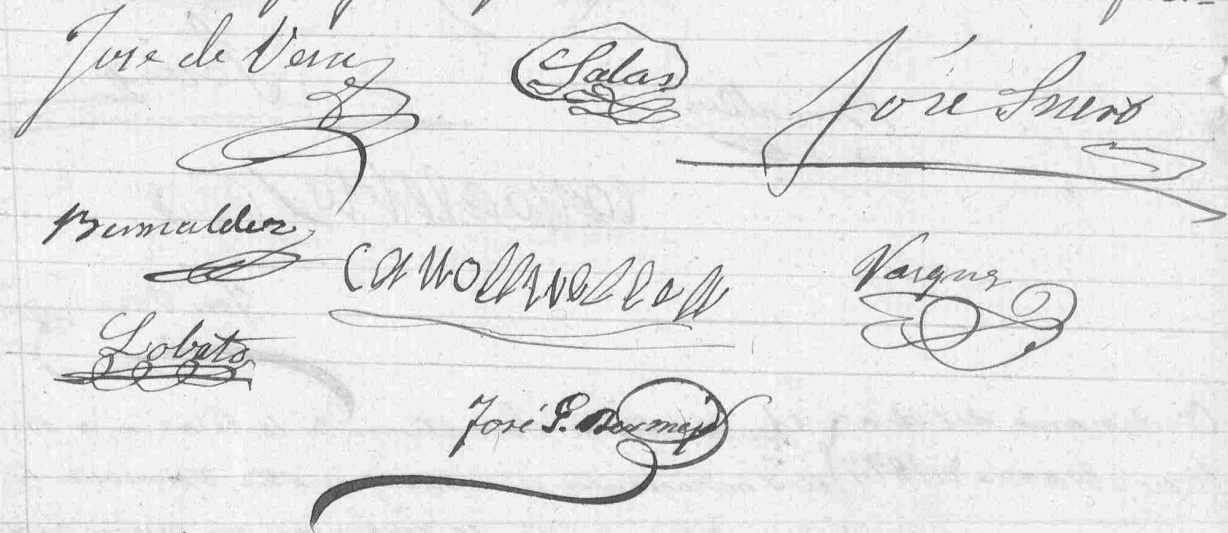 José de Vera
Salas
José Suero
Bernaldez
Vargas
Lobato
José P. Bermejo